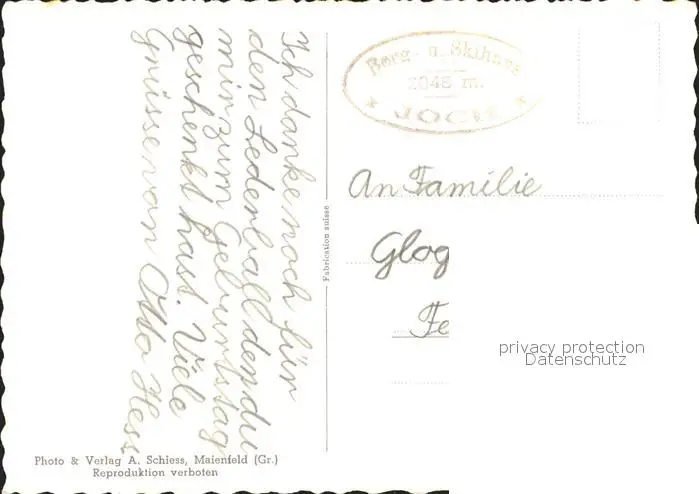 Ich danke noch für
den Lederball den du
mir zum Geburtstag
geschenkt hast. Viele
Grüsse von Otto Hess
Fabrication suisse
Berg- u. Skihaus
2045 m.
JOCH
An Familie
Glog
Fe
privacy protection
Datenschutz
Photo & Verlag A. Schiess, Maienfeld (Gr.)
Reproduktion verboten